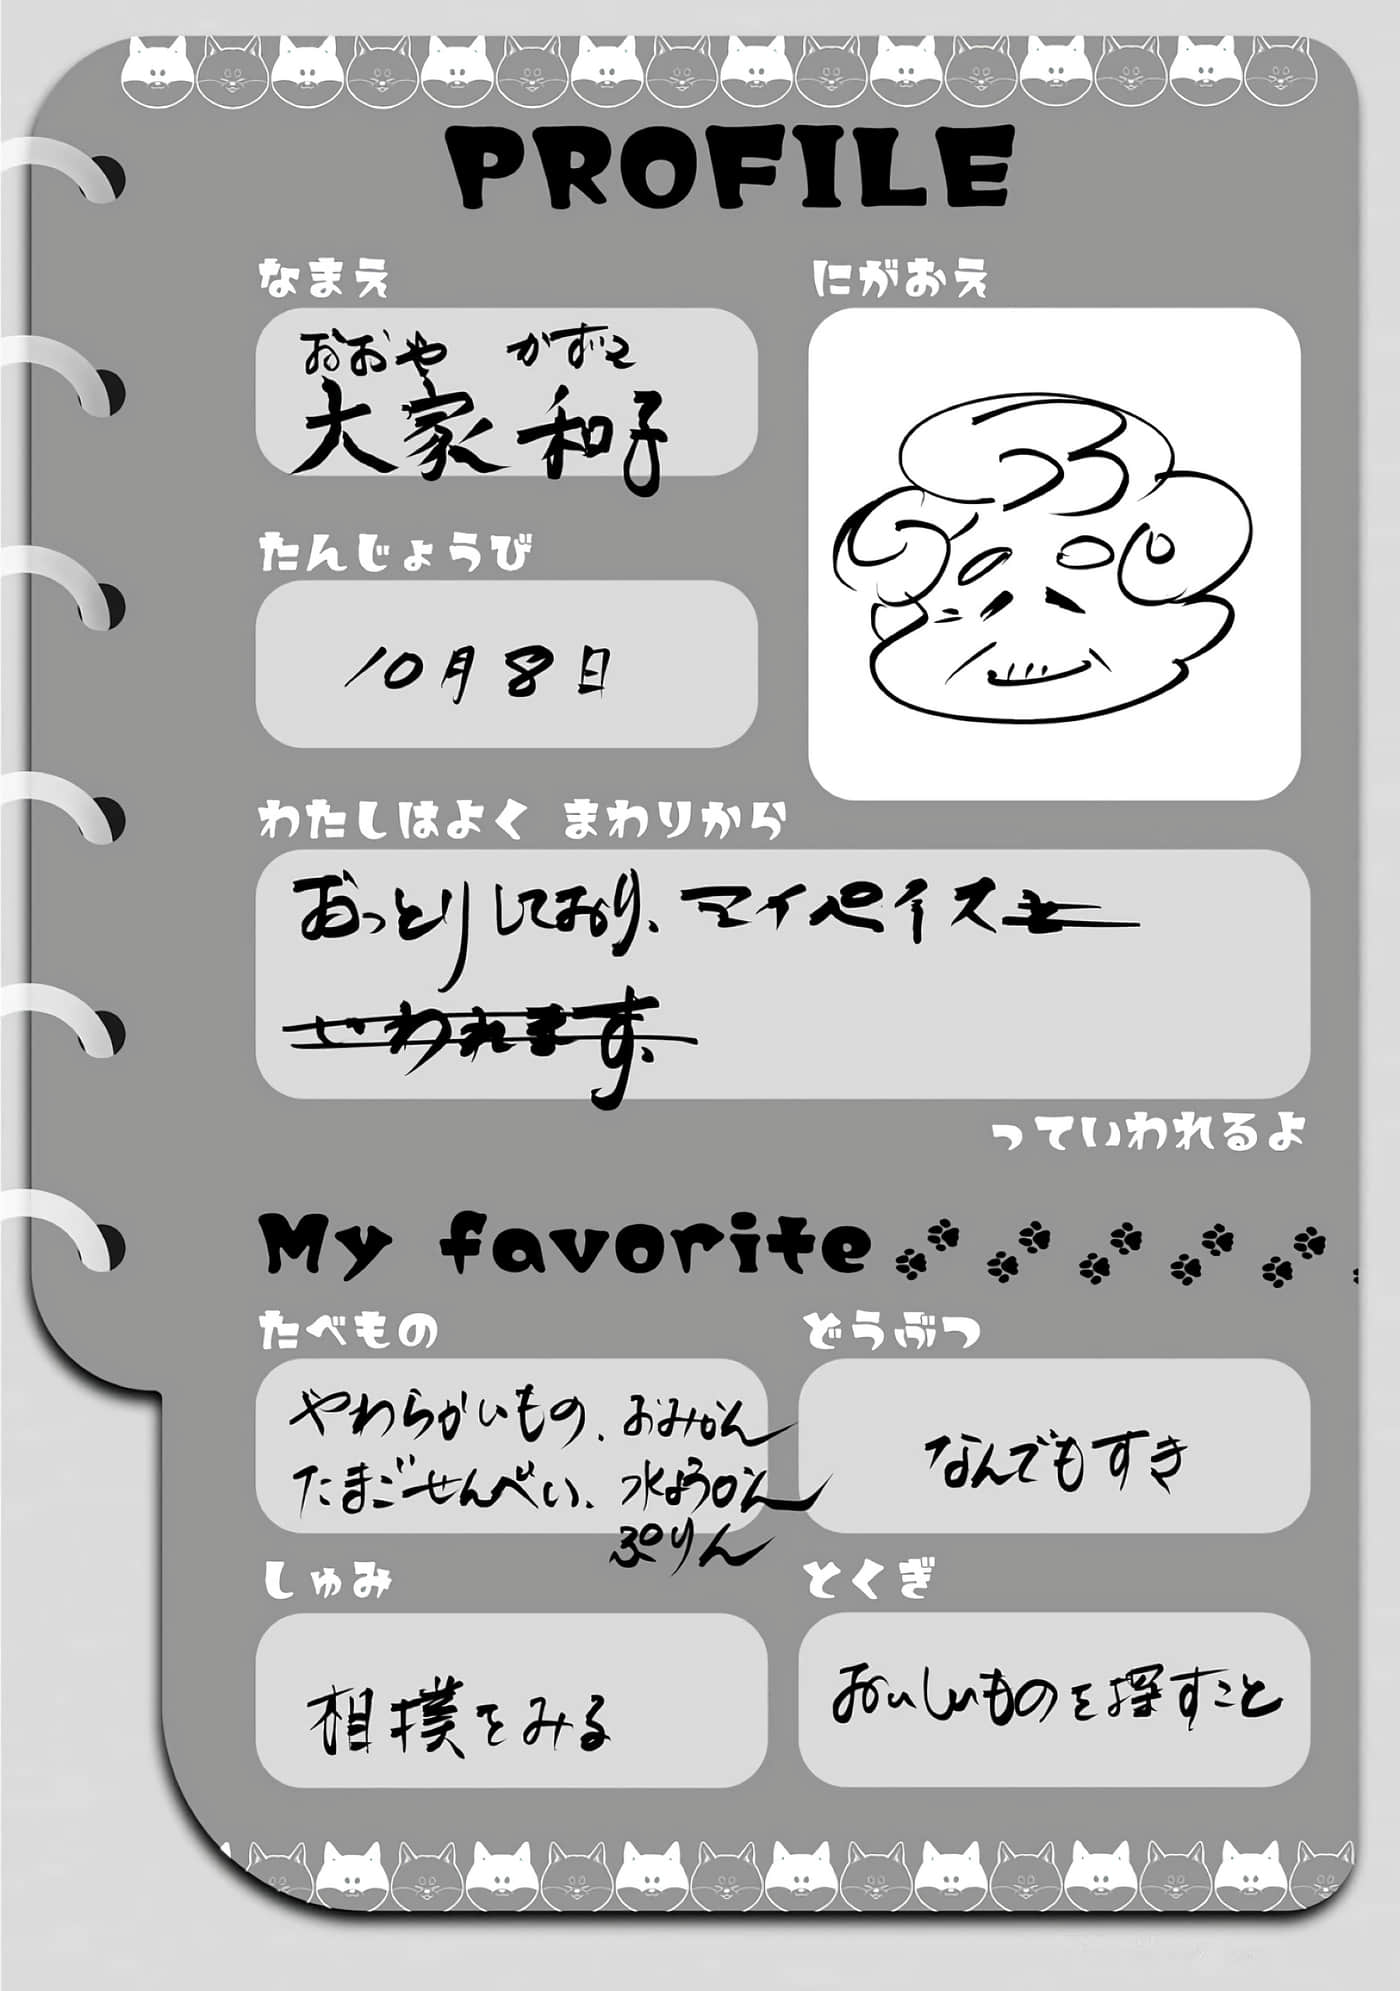 PROFILE
なまえ
おおや かずこ
大家 和子
にがおえ
たんじょうび
10月8日
わたしはよく まわりから
おっとりしており、マイペイスと
いわれます、
っていわれるよ
My favorite
たべもの
やわらかいもの、おみかん
たまごせんべい、水ようかん
ぷりん
どうぶつ
なんでもすき
しゅみ
相撲をみる
とくぎ
おいしいものを探すこと